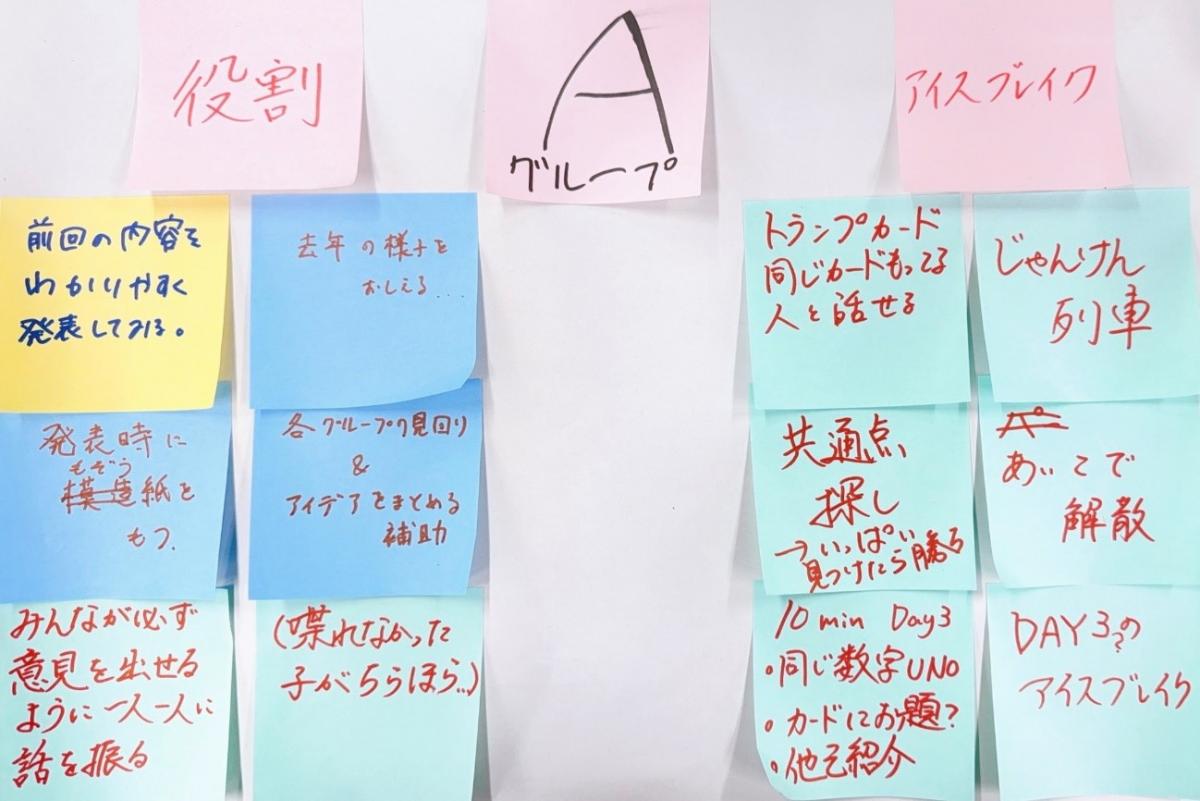 役割
A
グループ
アイスブレイク
前回の内容を
わかりやすく
発表してみる。
去年の様子を
おしえる...
発表時に
もぞう
模造紙を
もつ.
各グループの見回り
&
アイデアをまとめる
補助
みんなが必ず
意見を出せる
ように一人一人に
話を振る
(喋れなかった
子がちらほら...)
トランプカード
同じカードもってる
人と話せる
じゃんけん
列車
共通点
探し
→いっぱい
見つけたら勝ち
あいこで
解散
10 min Day3
・同じ数字UNO
・カードにお題?
・他己紹介
DAY3?の
アイスブレイク